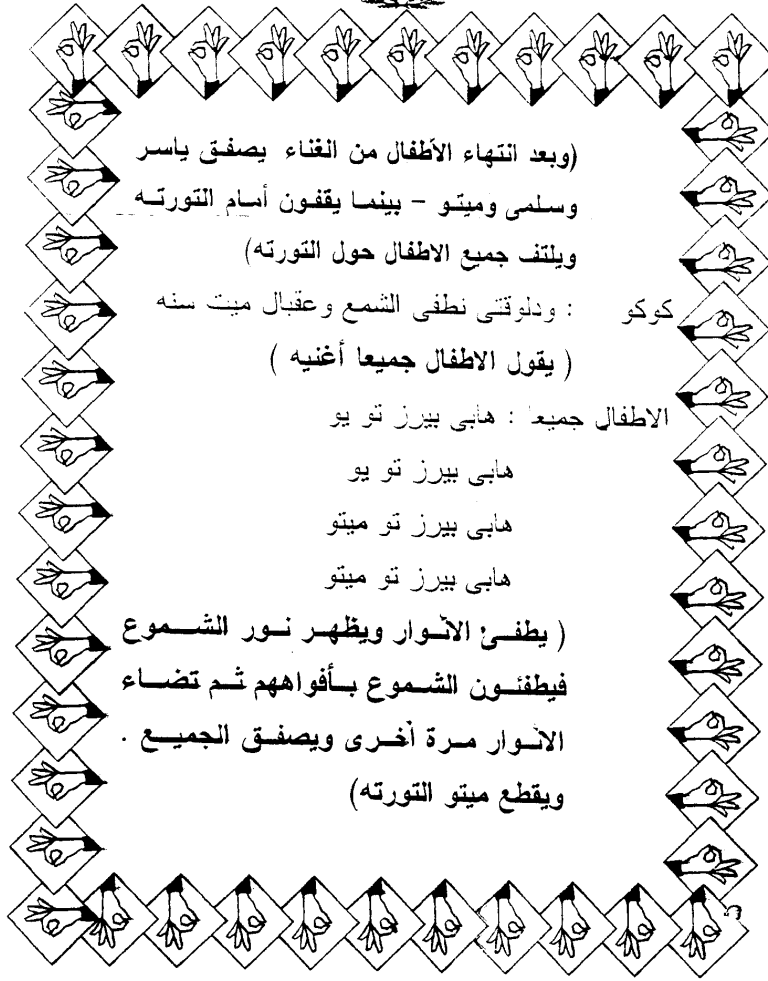 (وبعد انتهاء الأطفال من الغناء يصفق ياسر
وسلمى وميتو - بينما يقفون أمام التورته
ويلتف جميع الاطفال حول التورته)
كوكو : ودلوقتى نطفى الشمع وعقبال ميت سنه
( يقول الاطفال جميعا أغنيه )
الاطفال جميعا : هابى بيرز تو يو
هابى بيرز تو يو
هابى بيرز تو ميتو
هابى بيرز تو ميتو
( يطفئ الأنوار ويظهر نور الشموع
فيطفئون الشموع بأفواههم ثم تضاء
الأنوار مرة أخرى ويصفق الجميع .
ويقطع ميتو التورته)